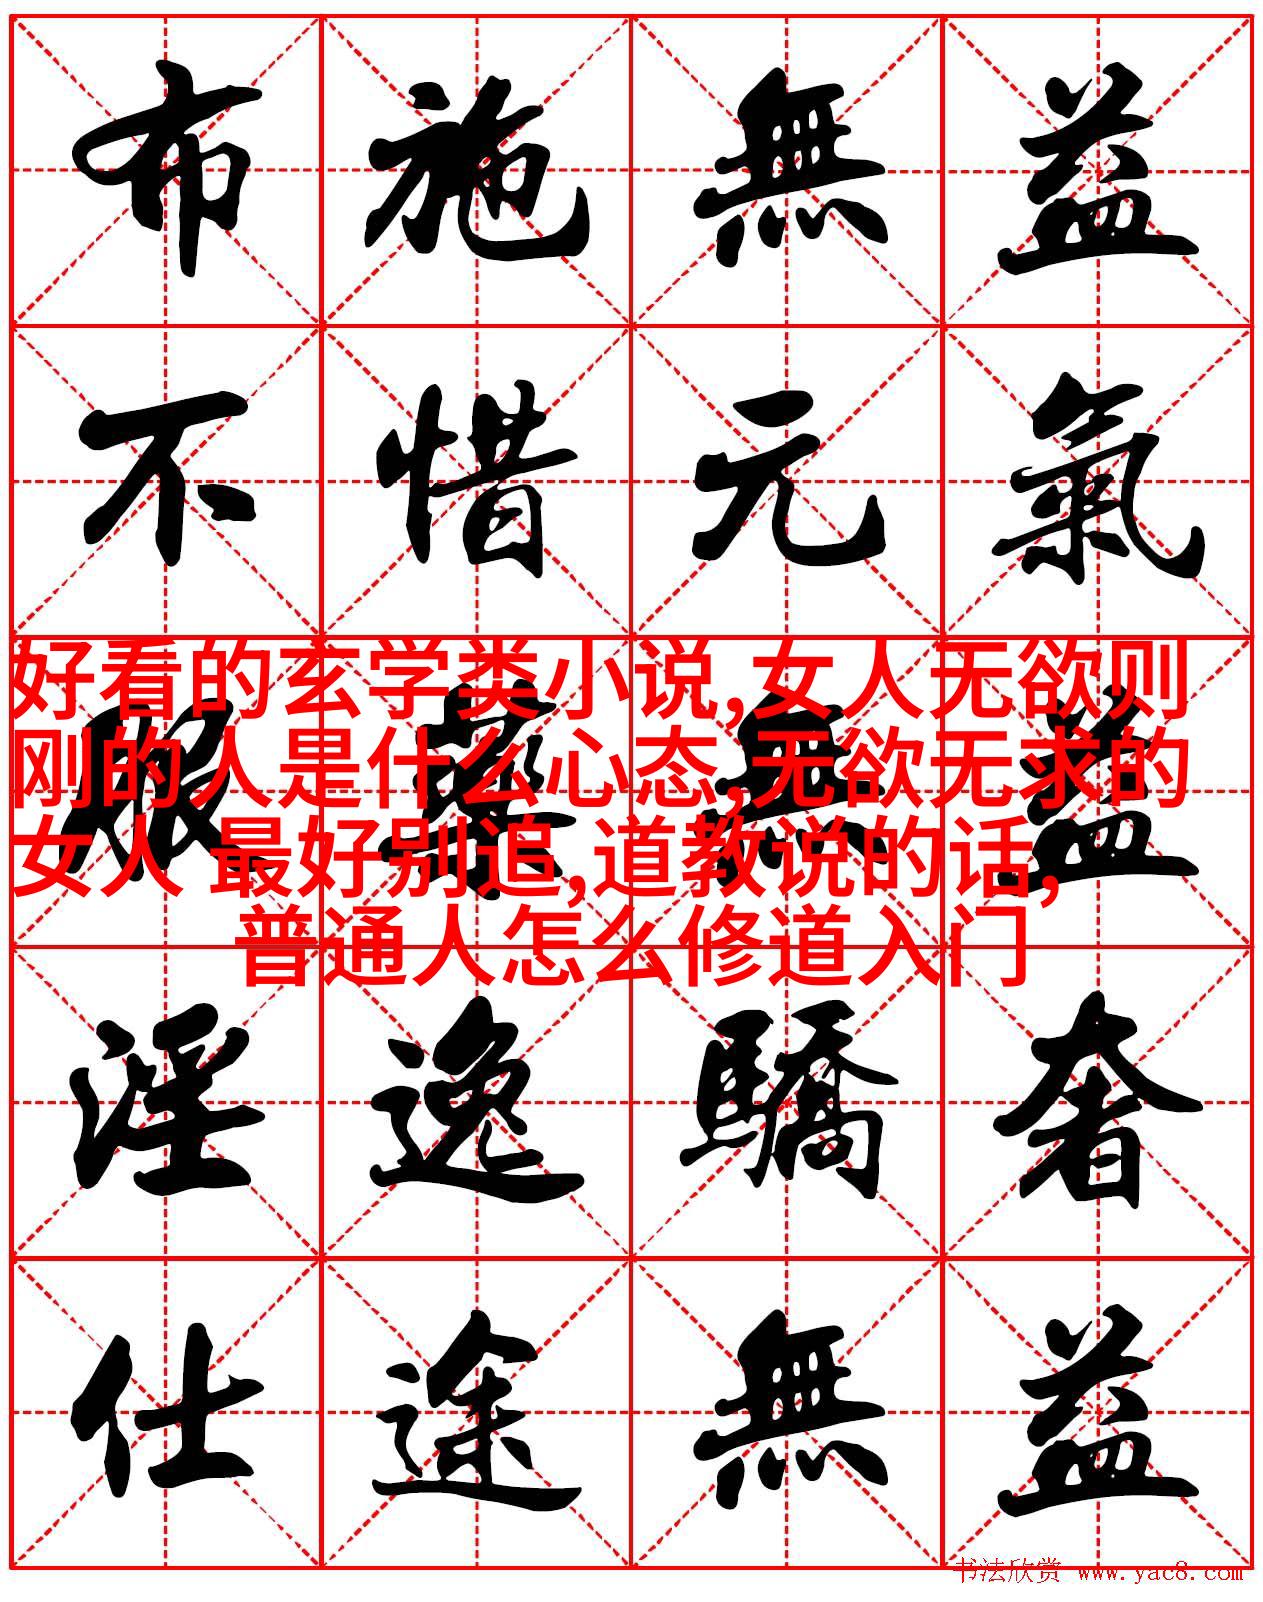 布施無益
不惜元氣
好看的玄学类小说,女人无欲则
刚的人是什么心态,无欲无求的
女人 最好别追,道教说的话,
普通人怎么修道入门
服藥無益
淫逸驕奢
仕途無益
书法欣赏 www.yac8.com